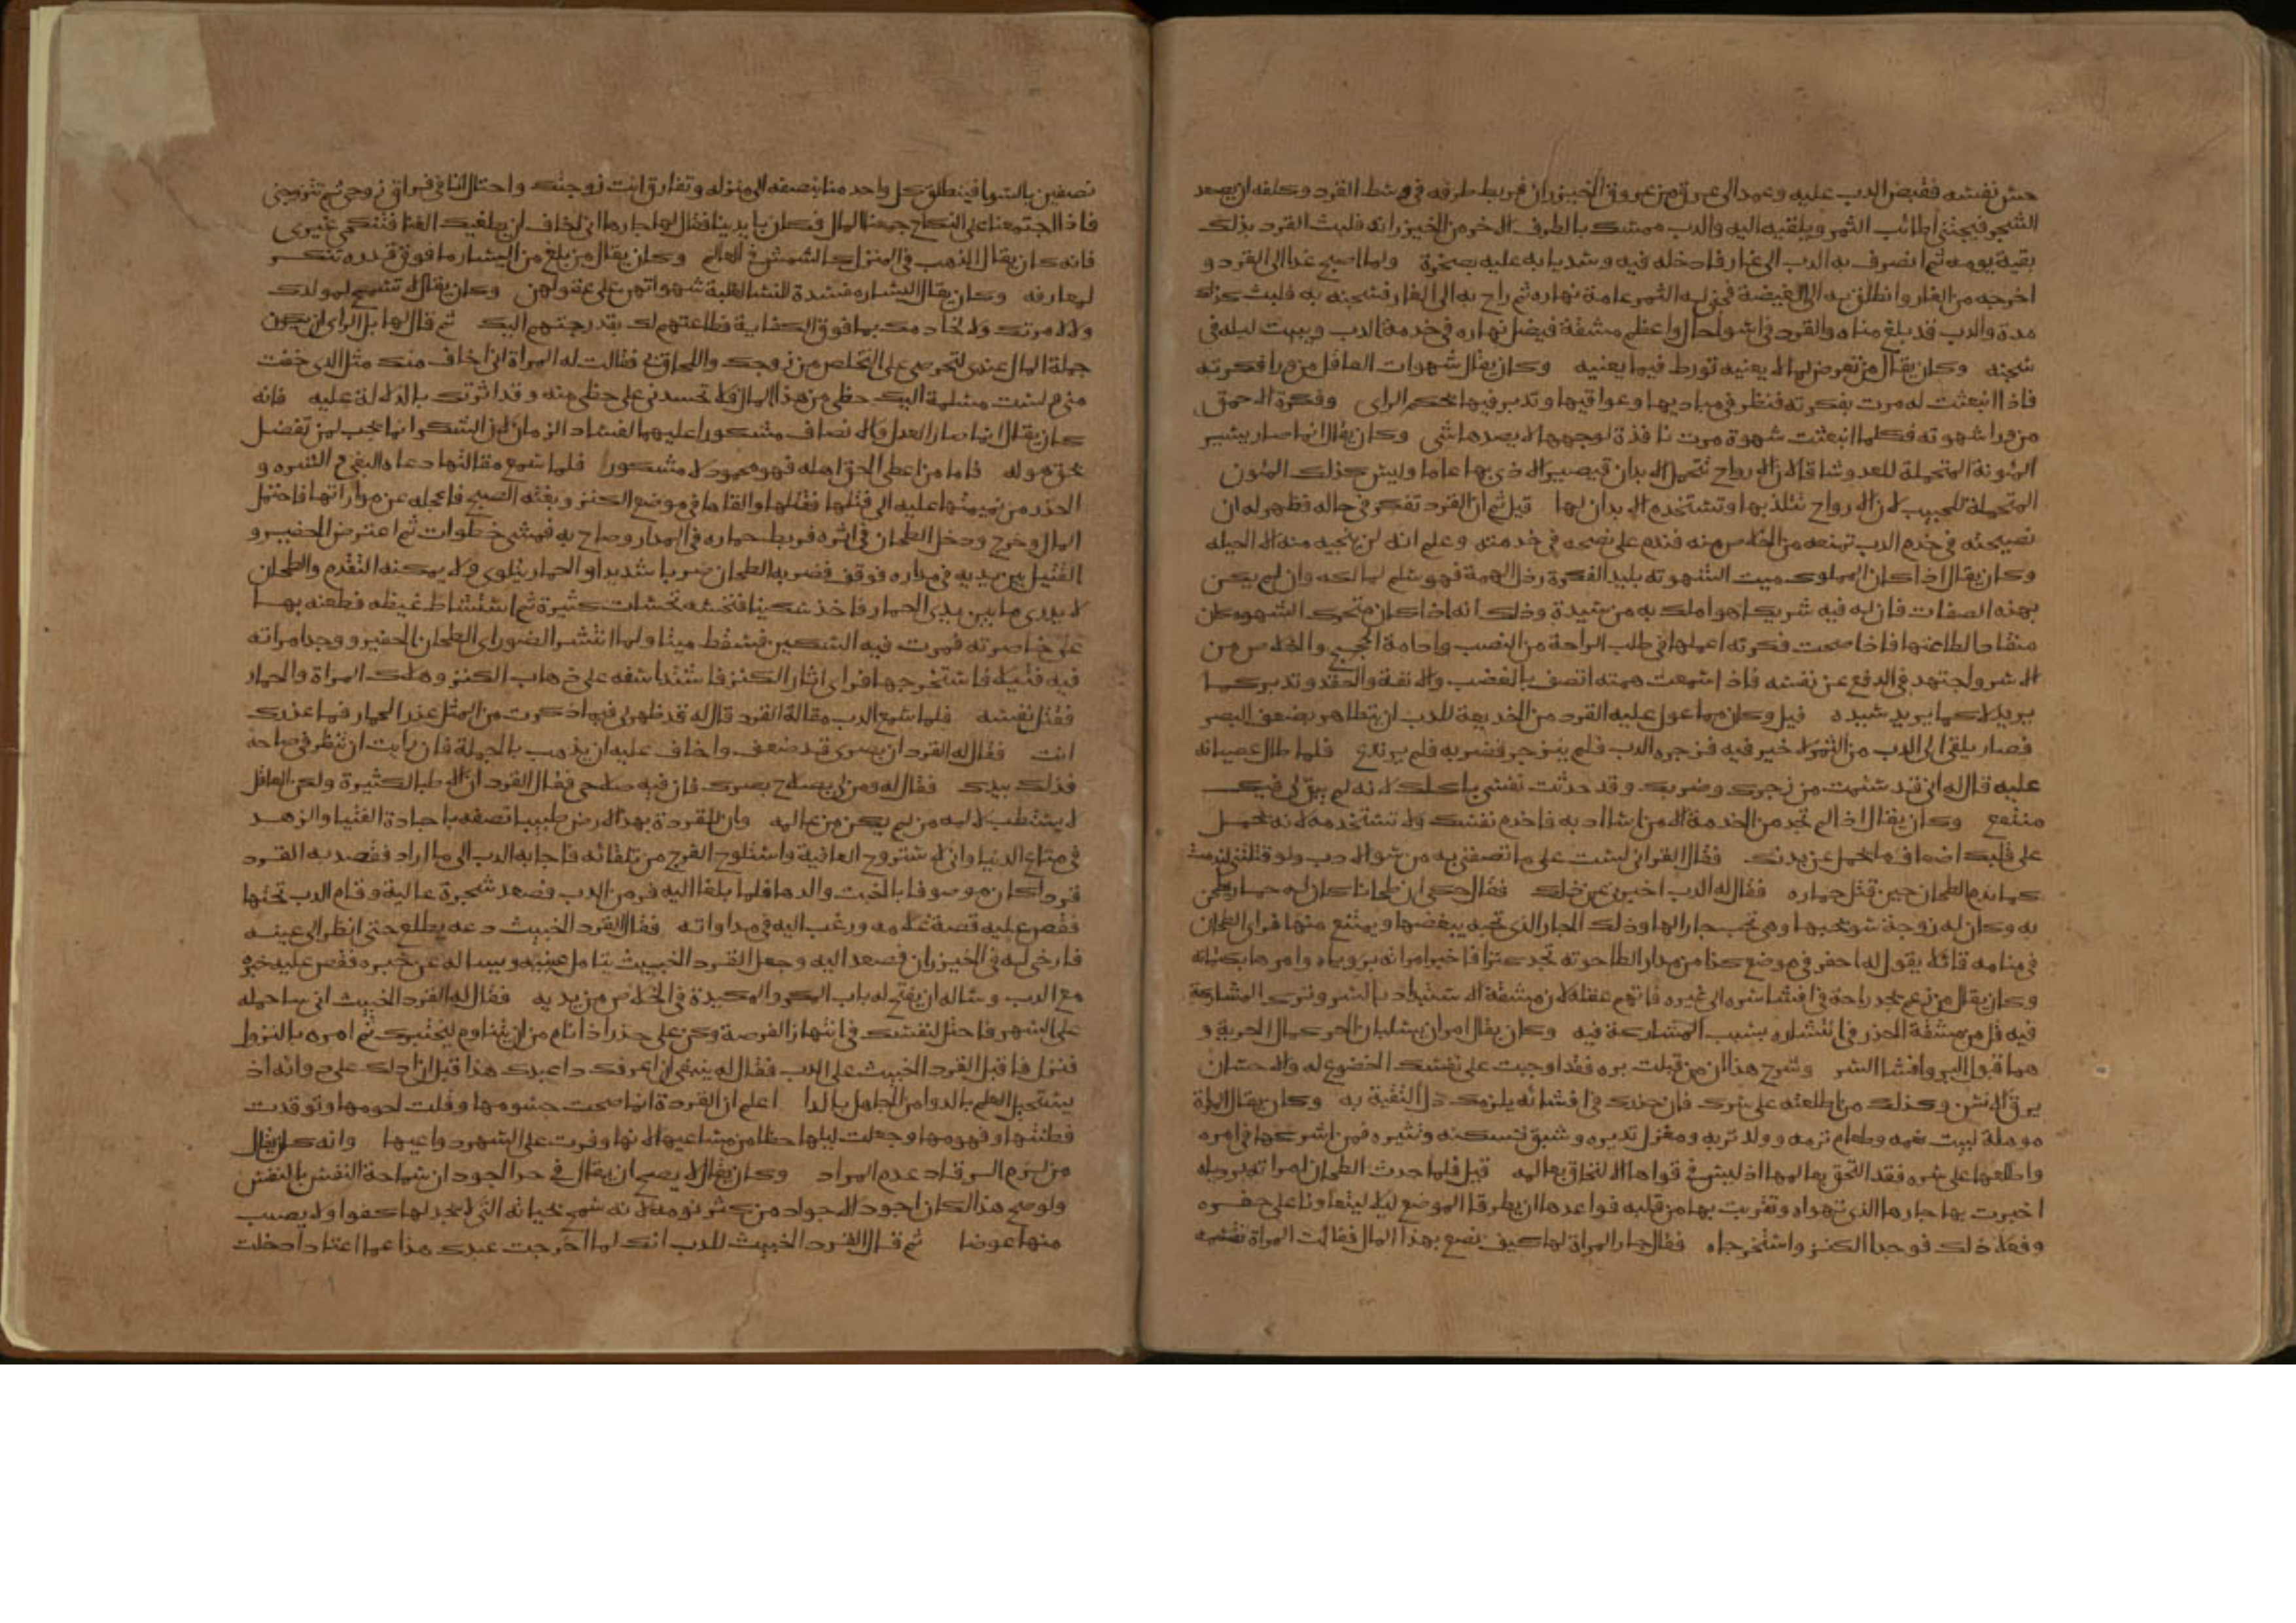 حس نفسه فقبض الدب عليه وعمد الى عرق من عروق الخيزران فربط طرفه في وسط القرد وكلفه ان يصعد
الشجر فيجتني اطائب الثمر ويلقيه اليه والدب ممسك بالطرف الاخر من الخيزرانة فلبث القرد بذلك
بقية يومه ثم انصرف به الدب الى غار فادخله فيه وسد بابه عليه بصخرة ولما اصبح غدا الى القرد و
اخرجه من الغار وانطلق به الى الغيضة فجنى له الثمر عامة نهاره ثم راح به الى الغار فسجنه به فلبث كذلك
مدة والدب قد بلغ مناه والقرد في اسوا حال واعظم مشقة فيضل نهاره في خدمة الدب ويبيت ليله في
سجنه وكان يقال من تعرض لما لا يعنيه تورط فيما يعنيه وكان يقال شهوات العاقل من ورا فكرته
فاذا انبعثت له مرت بفكرته فنظر في مباديها وعواقبها وتدبر فيها بحكم الراى وفكرة الاحمق
من ورا شهوته فكلما انبعثت شهوة مرت نافذة لوجهها لا يصدها شي وكان يقال انما صار يسير
المؤنة المتحملة للعدو شاقا لان الارواح تتحمل الابدان فيصير الاذى بها عاما وليس كذلك المئون
المتحملة للحبيب لان الارواح تتلذ بها وتستخدم الابدان لها قيل ثم ان القرد تفكر في حاله فظهر له ان
نصيحته في خدم الدب تمنعه من الخلاص منه فندم على نصحه في خدمته وعلم انه لن ينجيه منه الا الحيله
وكان يقال اذا كان المملوك ميت الشهوته بليد الفكرة رذل الهمة فهو سلم لمالكه وان لم يكن
بهذه الصفات فان له فيه شريكا هو املك به من سيده وذلك انه اذا كان متحرك الشهوه كان
منقادا لطاعتها فاذا صحت فكرته اعملها في طلب الراحة من النصب وادامة الحجج والخلاص من
الاسر ولجتهد في الدفع عن نفسه فاذا سمعت همته اتصف بالغضب والانفة والحقد وتدبر كما
يريد لا كما يريد سيده قيل وكان مما عول عليه القرد من الخديعة للدب ان يتظاهر بضعف البصر
فصار يلقى الى الدب من الثمر لا خير فيه فزجره الدب فلم ينزجر فضربه فلم يرتدع فلما طال عصيانه
عليه قال له انى قد سئمت من زجرك وضربك وقد حدثت نفسى باكلك لانه لم يبق لى فيك
منتفع وكان يقال اذا لم تجد من الخدمة الا من اساادبه فاخدم نفسك ولا تستخدمه لانه يحمل
على قلبك اضعاف ما يحمل عن بدنك فقال القرد انى لست على ما تصفني به من سو الادب ولو قتلتني لندمت
كما ندم الطحان حين قتل حماره فقال له الدب اخبرنى عن ذلك فقال حكى ان طحانا كان له حمار يطحن
به وكان له زوجة سو يحبها وهى تحب جارا لها وذلك الجار الذى تحبه يبغضها ويمتنع منها فراى الطحان
في منامه قائلا يقول له احفر في موضع كذا من مدار الطاحونه تجد كنزا فاخبر امراته برؤياه وامرها بكتمانه
وكان يقال من زعم يجد راحة في افشا سره الى غيره فاتهم عقله لان مشقة الاستبداد بالسر وترك المشاركة
فيه اقل من مشقة الحذر في انتشاره بسبب المشاركة فيه وكان يقال امران يسلبان الحر كمال الحرية و
هما قبول البر وافشا السر وشرح هذا ان من قبلت بره فقد اوجبت على نفسك الخضوع له والاحسان
يرق الانس وكذلك من اطلعته على سرك فان حذرك في افشائه يلزمك ذل التقية به وكان يقال المراة
موهلة لبيت تقمه وطعام ترمه وولد تربه ومغزل تديره وشبق تسكنه وتثيره فمن اشركها في امره
واطلعها على سره فقد التحق بعالمها اذ ليس في قواها الالتحاق بعالمه قيل فلما حدث الطحان امراته برؤياه
اخبرت بها جارها الذى تهواه وتقربت بها من قلبه فواعدها ان يطرقا الموضع ليلا ليتعاونا على حفره
وفعلا ذلك فوجدا الكنز واستخرجاه فقال جار المراة لها كيف نصنع بهذا المال فقالت المراة نقسمه
نصفين بالسوا فينطلق كل واحد منا بنصفه الى منزله وتفارق انت زوجتك واحتال انا في فراق زوجى ثم تتزوجنى
فاذا اجتمعنا على النكاح جمعنا المال فكان بايدينا فقال لها جارها انى اخاف ان يطغيك الغنا فتنكحى غيرى
فانه كان يقال الذهب في المنزل كالشمس في العالم وكان يقال من بلغ من اليسار ما فوق قدره تنكر
لمعارفه وكان يقال اليسار مفسدة للنسا لغلبة شهواتهن على عقولهن وكان يقال لا تسمح لمولدك
ولا لامرتك ولا لخادمك بما فوق الكفاية فطاعتهم لك بقدر حجتهم اليك ثم قال لها بل الراى ان يكون
جملة المال عندى لتحرصى على التخلص من زوجك واللحاق بى فقالت له المراة انى اخاف منك مثل الذى خفت
منى ولست مسلمة اليك حظى من هذا المال فلا تحسدنى على حظى منه وقد اثرتك بالدلالة عليه فانه
كان يقال انما صار العدل والانصاف مشكورا عليهما لفساد الزمان لان الشكر انما يجب لمن تفضل
بحق هو له فاما من اعطى الحق اهله فهو محمود لا مشكور فلما سمع مقالتها دعاه البغي والشره و
الحذر من نميمتها عليه الى قتلها فقتلها والقاها في موضع الكنز وبغته الصبح فاعجله عن مواراتها فاحتمل
المال وخرج ودخل الطحان في اثره فربط حماره في المدار وصاح به فمشى خطوات ثم اعترض الحفير و
القتيل بين يديه في مداره فوقف فضربه الطحان ضربا شديدا والحمار يتلوى ولا يمكنه التقدم والطحان
لا يدرى ما بين يدى الحمار فاخذ سكينا فنخسه نخسات كثيرة ثم استشاط غيظه فطعنه بها
على خاصرته فمرت فيه السكين فسقط ميتا ولما انتشر الضو راى الطحان الحفير ووجد امراته
فيه قتيله فاستخرجها فراى اثار الكنز فاشتد اسفه على ذهاب الكنز وهلاك المراة والحمار
فقتل نفسه فلما سمع الدب مقالة القرد قال له قد ظهر لى فيما ذكرت من المثل عذر الحمار فما عذرك
انت فقال له القرد ان بصرى قد ضعف واخاف عليه ان يذهب بالجملة فان رايت ان تنظر في صلاحه
فذلك بيدك فقال له ومن لى بصلاح بصرك فان فيه صلاحى فقال القرد ان الاطبا لكثيرة ولكن العاقل
لا يستطب الا من لم يكن من عالمه وان للقردة بهذه الارض طبيبا تصفه باجادة الفتيا والزهد
في متاع الدنيا وانى لاستروح العافية واستلوح الفرج من تلقائه فاجابه الدب الى ما اراد فقصد به القرد
قردا كان موصوفا بالخبث والدها فلما بلغا اليه فر من الدب فصعد شجرة عالية وقام الدب تحتها
فقص عليه قصة غلامه ورغب اليه في مداواته فقال القرد الخبيث دعه يطلع حتى انظر الى عينه
فارخى له في الخيزران فصعد اليه وجعل القرد الخبيث يتامل عينيه ويساله عن خبره فقص عليه خبره
مع الدب وساله ان يفتح له باب المكر والمكيدة في الخلاص من يديه فقال له القرد الخبيث انى ساحمله
على السهر فاحتل لنفسك في انتهاز الفرصة وكن على حذر اذا نام من ان يتناوم ليختبرك ثم امره بالنزول
فنزل فاقبل القرد الخبيث على الدب فقال له ينبغى ان اعرفك داعبدك هذا قبل ان ادلك على دوائه اذ
يستحيل العلم بالدوا من الجاهل بالدا اعلم ان القردة انما صحت جسومها وقلت لحومها وتوقدت
فطنتها وفهومها وجعلت ليلها حظا من مساعيها لانها وفرت على السهر دواعيها وانه كان يقال
من لزم الرقاد عدم المراد وكان يقال لا يصح ان يقال في حد الجود ان سماحة النفس بالنفس
ولو صح هذا لكان اجود الاجواد من كثر نومه لانه سمح بحياته التى لا يجد لها كفوا ولا يصيب
منها عوضا ثم قال القرد الخبيث للدب انك لما اخرجت عبدك هذا عما اعتاد ادخلت